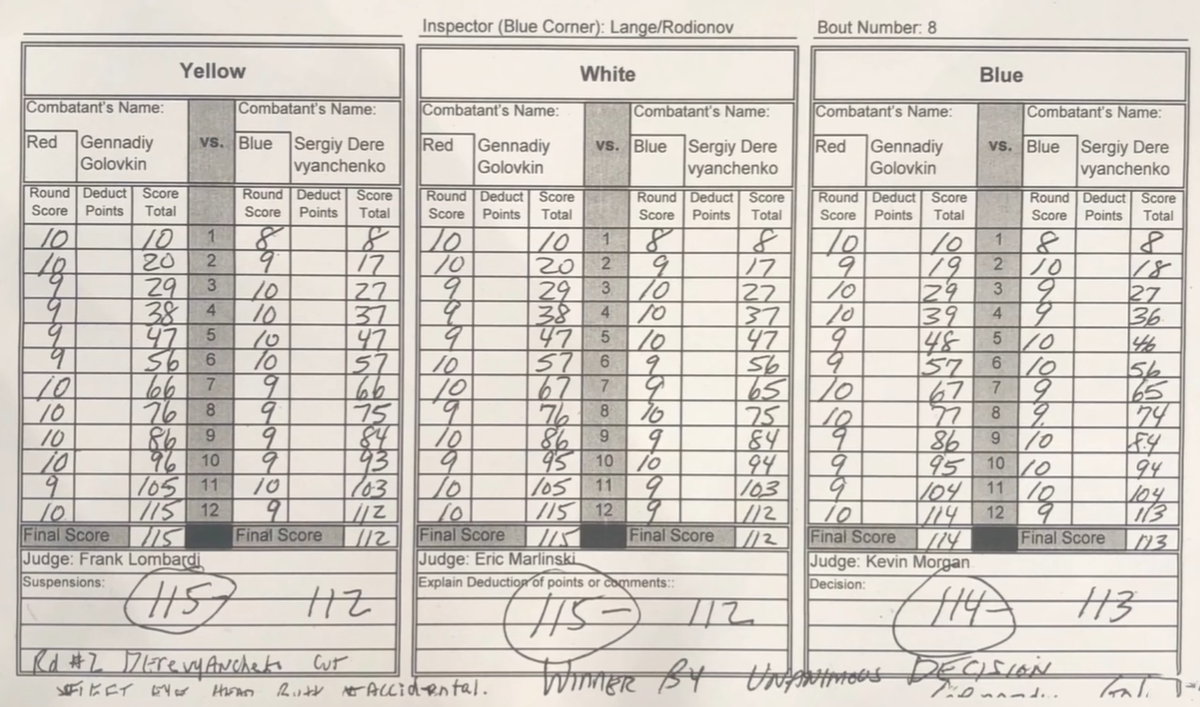 Inspector (Blue Corner): Lange/Rodionov Bout Number: 8
Yellow White Blue
Combatant's Name: Combatant's Name: Combatant's Name: Combatant's Name: Combatant's Name: Combatant's Name:
Red Gennadiy vs. Blue Sergiy Dere Red Gennadiy vs. Blue Sergiy Dere Red Gennadiy vs. Blue Sergiy Dere
Golovkin vyanchenko Golovkin vyanchenko Golovkin vyanchenko
Round Deduct Score Round Deduct Score Round Deduct Score Round Deduct Score Round Deduct Score Round Deduct Score
Score Points Total Score Points Total Score Points Total Score Points Total Score Points Total Score Points Total
10 10 1 8 8 10 10 1 8 8 10 10 1 8 8
10 20 2 9 17 10 20 2 9 17 9 19 2 10 18
9 29 3 10 27 9 29 3 10 27 10 29 3 9 27
9 38 4 10 37 9 38 4 10 37 10 39 4 9 36
9 47 5 10 47 9 47 5 10 47 9 48 5 10 46
9 56 6 10 57 10 57 6 9 56 9 57 6 10 56
10 66 7 9 66 10 67 7 9 65 10 67 7 9 65
10 76 8 9 75 9 76 8 10 75 10 77 8 9 74
10 86 9 9 84 10 86 9 9 84 9 86 9 10 84
10 96 10 9 93 9 95 10 10 94 9 95 10 10 94
9 105 11 10 103 10 105 11 9 103 9 104 11 10 104
10 115 12 9 112 10 115 12 9 112 10 114 12 9 113
Final Score 115 Final Score 112 Final Score 115 Final Score 112 Final Score 114 Final Score 113
Judge: Frank Lombardi Judge: Eric Marlinski Judge: Kevin Morgan
Suspensions: Explain Deduction of points or comments:: Decision:
115- 112 115- 112 114- 113
Rd #2 Cut
Accidental. WINNER BY UNANIMOUS DECISION